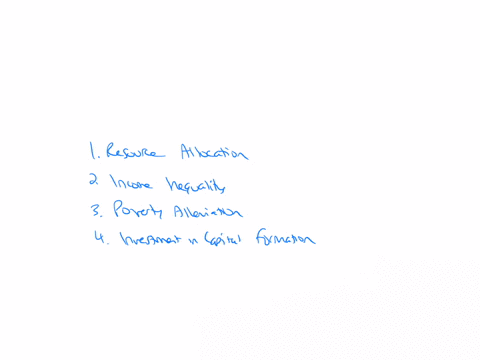 1. Resource Allocation
2. Income Inequality
3. Poverty Alleviation
4. Investment in Capital Formation